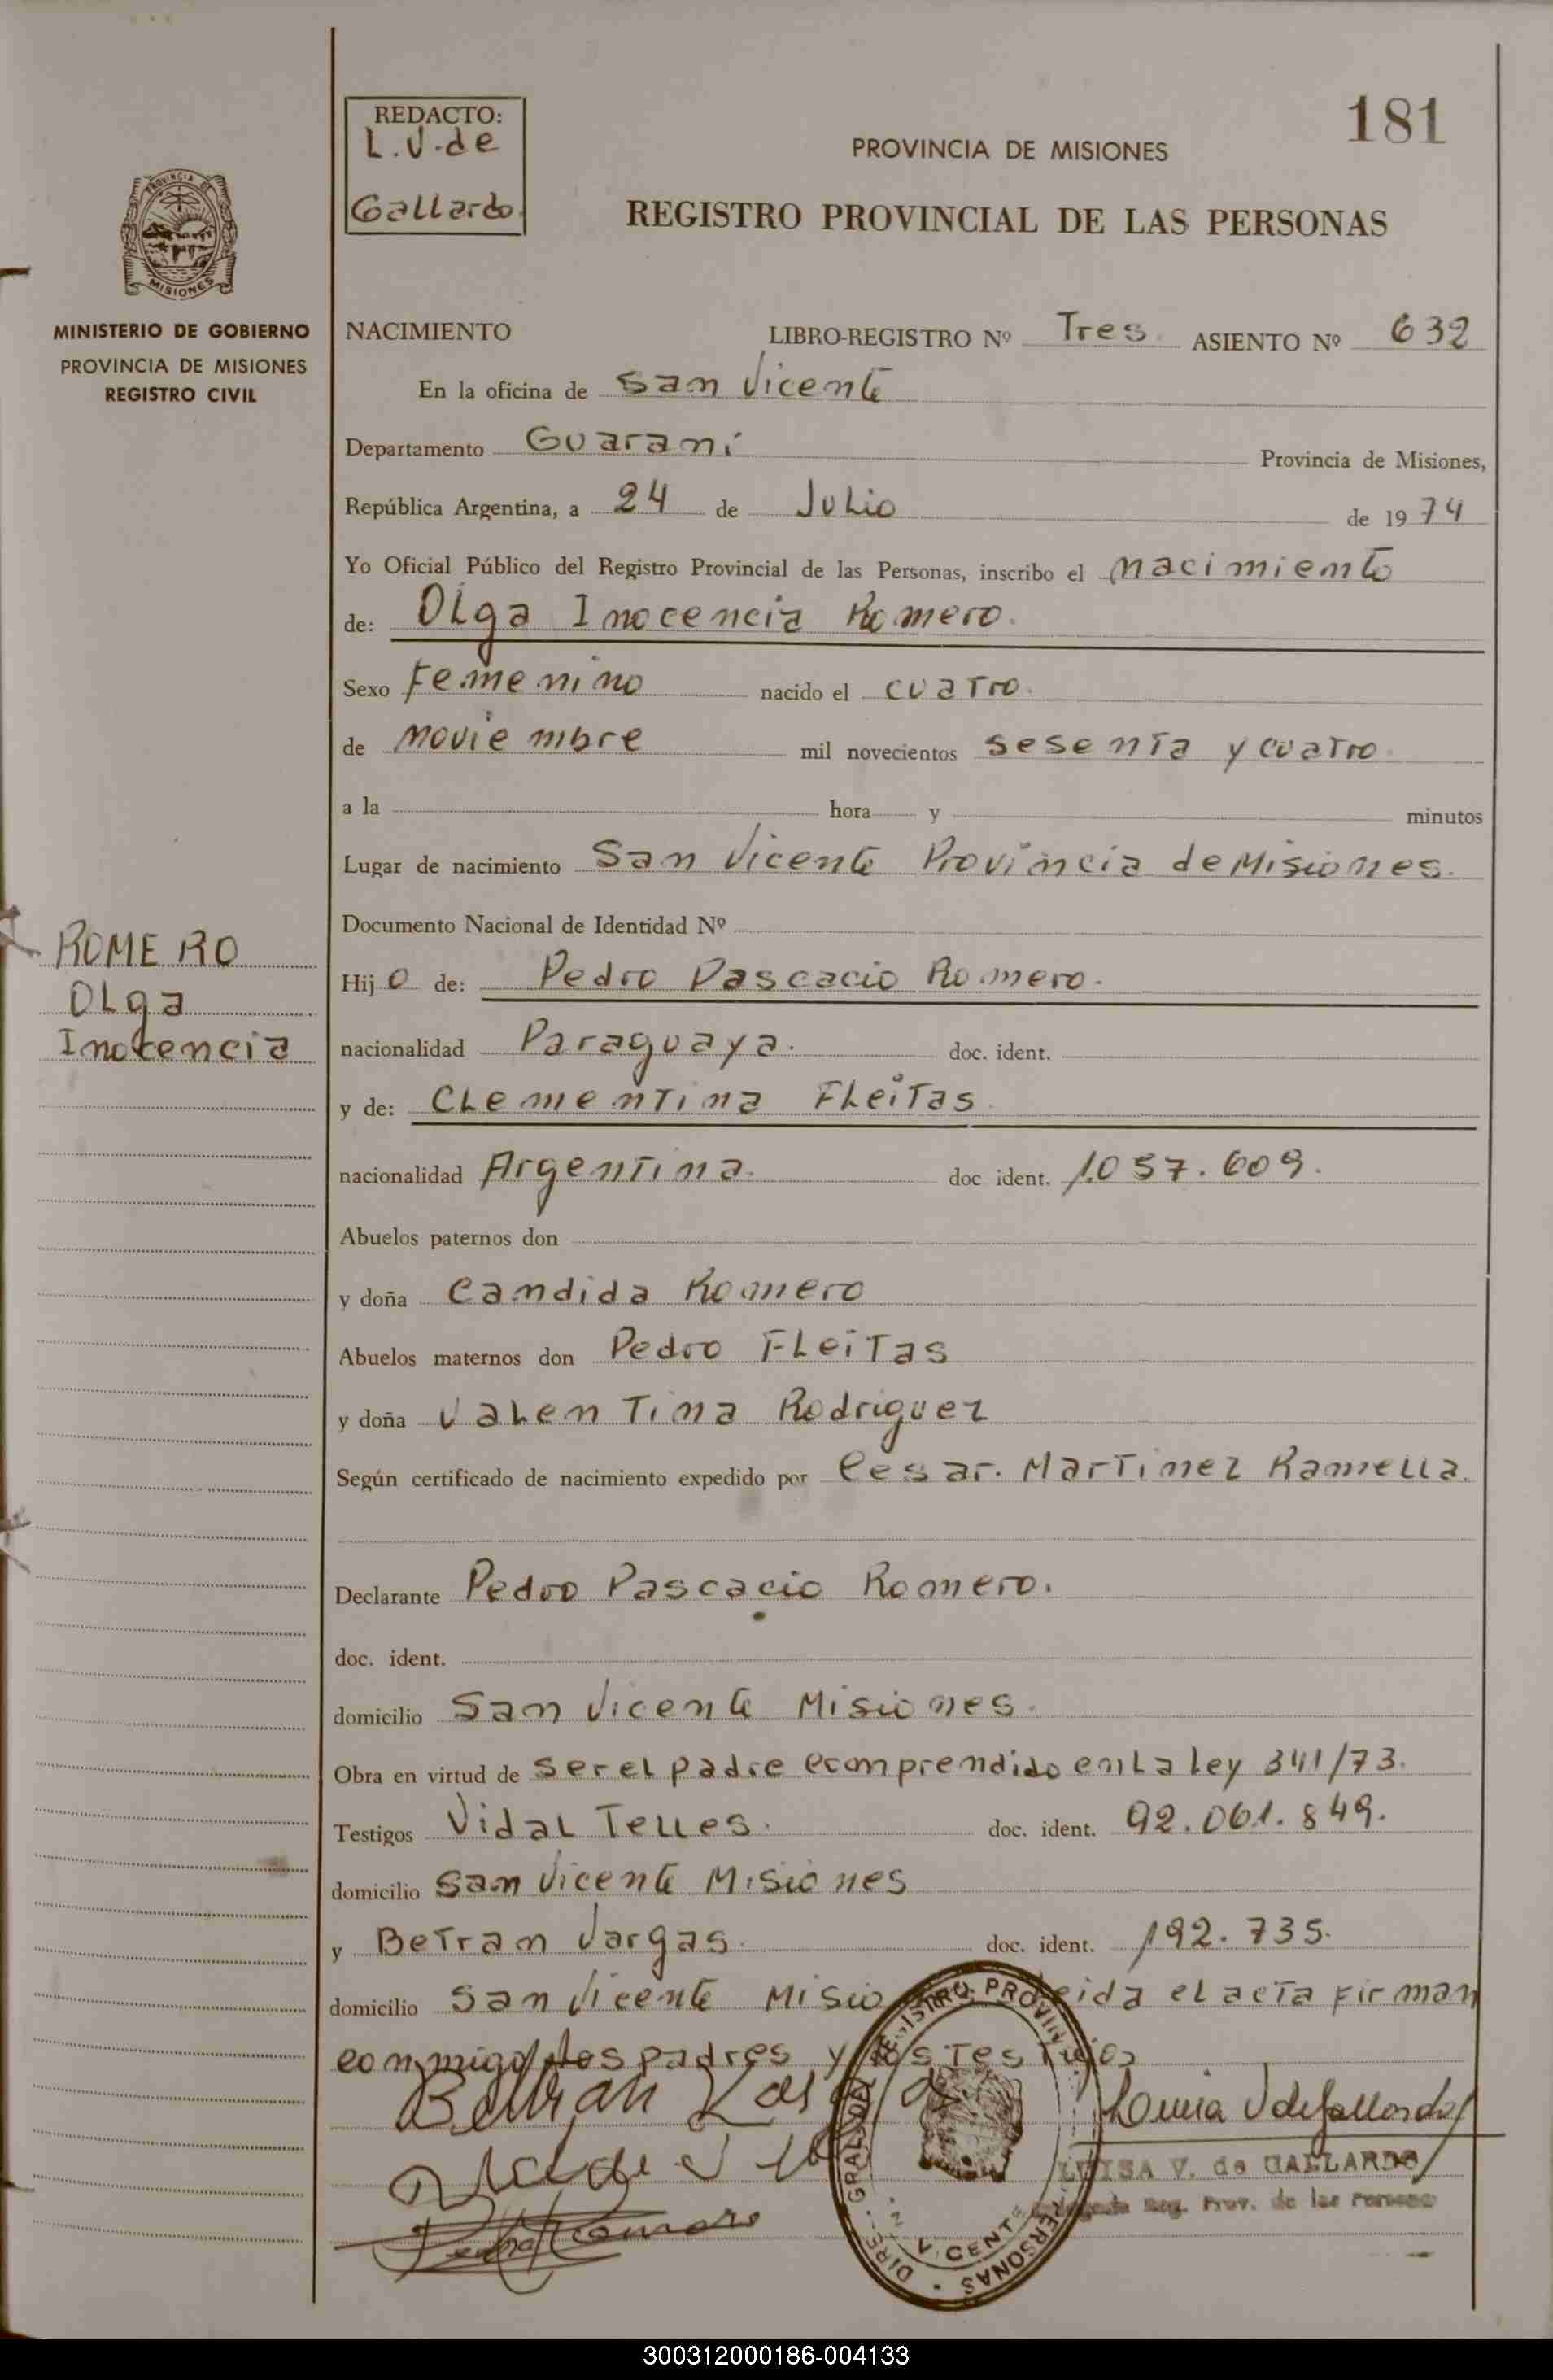 181
REDACTO:
L.V. de
Gallardo
PROVINCIA DE MISIONES
REGISTRO PROVINCIAL DE LAS PERSONAS
PROVINCIA DE
MISIONES
MINISTERIO DE GOBIERNO
PROVINCIA DE MISIONES
REGISTRO CIVIL
NACIMIENTO LIBRO-REGISTRO Nº Tres ASIENTO Nº 632
En la oficina de San Vicente
Departamento Guaraní Provincia de Misiones,
República Argentina, a 24 de Julio de 1974
Yo Oficial Público del Registro Provincial de las Personas, inscribo el nacimiento
de: Olga Inocencia Romero.
Sexo Femenino nacido el cuatro.
de noviembre mil novecientos sesenta y cuatro.
a la hora y minutos
Lugar de nacimiento San Vicente Provincia de Misiones.
Documento Nacional de Identidad Nº
ROMERO
Olga
Inocencia
Hijo de: Pedro Pascacio Romero.
nacionalidad Paraguaya. doc. ident.
y de: Clementina Fleitas
nacionalidad Argentina. doc ident. 1.057.609.
Abuelos paternos don
y doña Candida Romero
Abuelos maternos don Pedro Fleitas
y doña Valentina Rodriguez
Según certificado de nacimiento expedido por Cesar. Martinez Ramella.
Declarante Pedro Pascacio Romero.
doc. ident.
domicilio San Vicente Misiones.
Obra en virtud de ser el padre comprendido en La Ley 341/73.
Testigos Vidal Telles. doc. ident. 92.061.849.
domicilio San Vicente Misiones
y Betran Vargas. doc. ident. 192.735.
domicilio San Vicente Misio eida el acta firman
conmigo los padres y los testigos
Beltran
Luisa V de Gallardo
LUISA V. de GALLARDO
Reg. Prov. de las Personas
Pedro Romero
DIREC. GRAL. DEL REGISTRO PROVIN PERSONAS
VICENTE
300312000186-004133